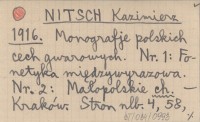 NITSCH Kazimierz
1916. Monografje polskich
cech gwarowych. Nr. 1: Fo-
netyka międzywyrazowa.
Nr. 2: Małopolskie ch. —
Kraków. Stron nlb. 4, 58,